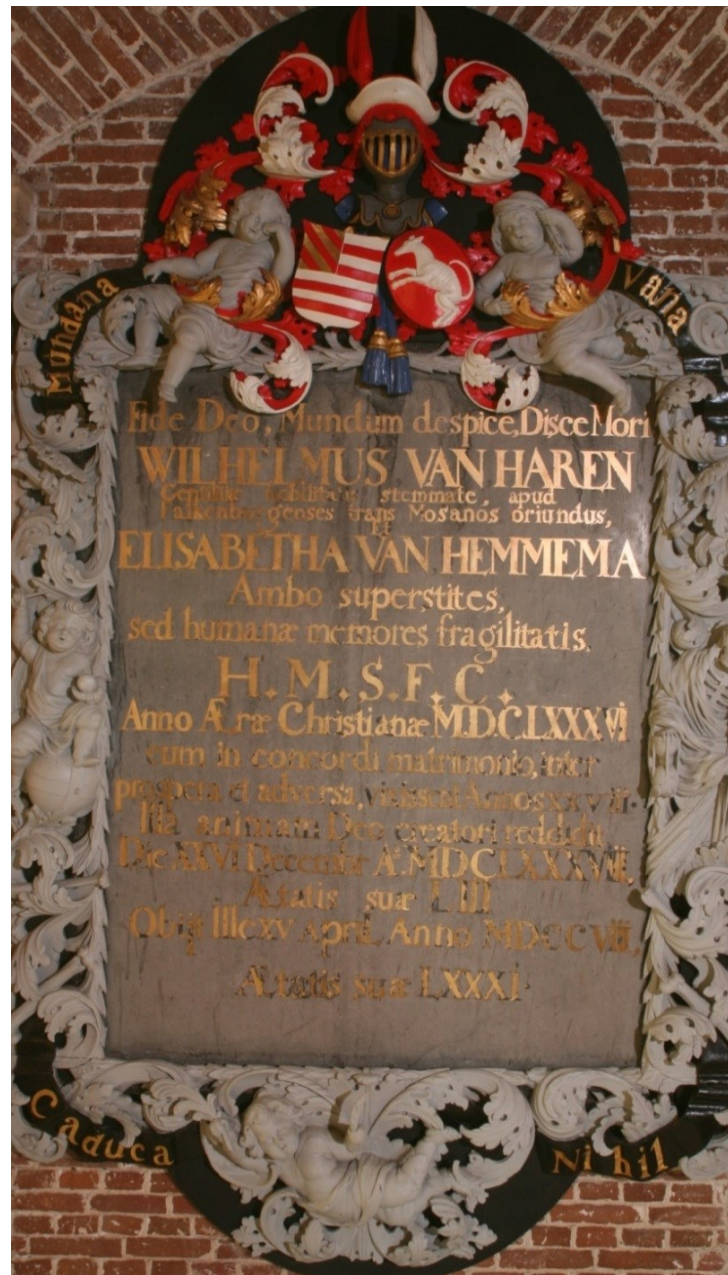 Mundana
Vana
Fide Deo, Mundum despice, Disce Mori
WILHELMUS VAN HAREN
stemmate, apud
genses trans Mosanos oriundus,
Et
ELISABETHA VAN HEMMEMA
Ambo superstites,
sed humanæ memores fragilitatis.
H. M. S. F. C.
Anno Æræ Christianæ MDCLXXXVI
cum in concordi matrimonio, inter
prospera et adversa, Annos XXVII.
Illa animam Deo creatori reddidit
Die XXVI Decembr A. MDCLXXXVIII,
Ætatis suæ LIII
Obijt Ille XV April, Anno MDCCVIII,
Ætatis suæ LXXXI
Caduca
Nihil